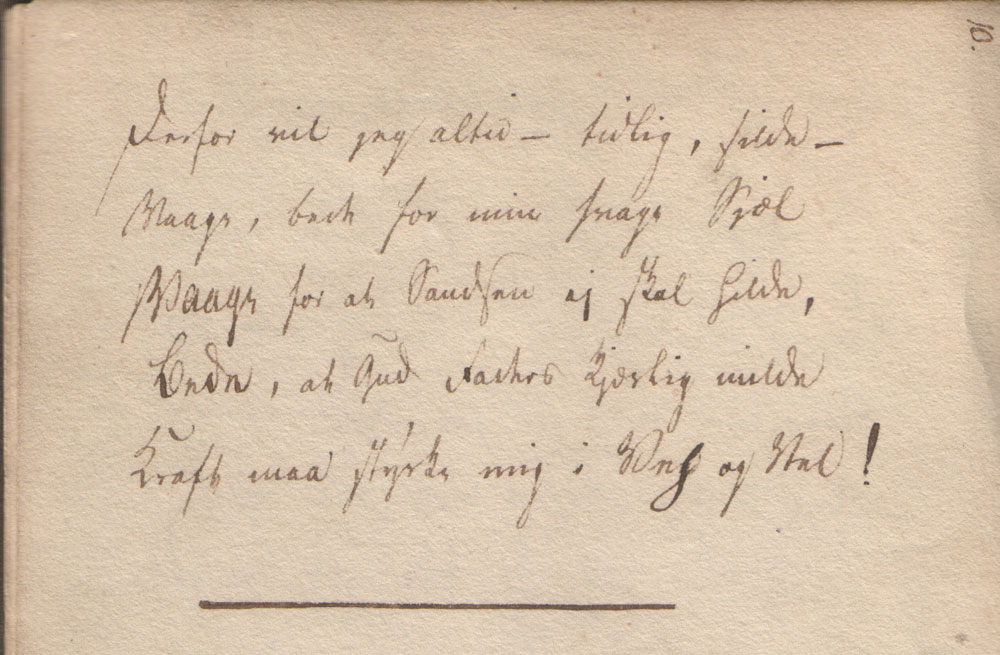 10.
Derfor vil jeg altid – tidlig, silde –
Vaage, bede for min svage Sjæl
Vaage for at Sandsen ej skal hilde,
Bede, at Gud Faders kjærlig milde
Kraft maa styrke mig i Vee og Vel!